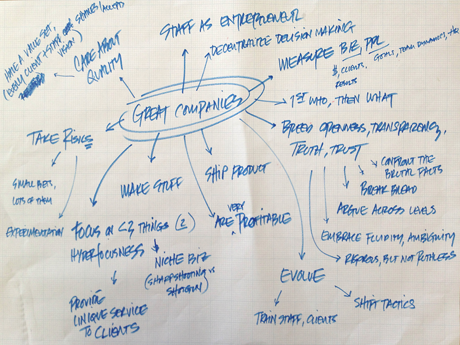 STAFF AS ENTREPRENEUR
DECENTRALIZE DECISION MAKING
MEASURE BIZ, PPL
$, CLIENTS,
RESULTS
GOALS, TEAM DYNAMICS,
HAVE A VALUE SET,
(EVERY CLIENT + STAFF
VISION)
CARE ABOUT
QUALITY
GREAT COMPANIES
1ST WHO, THEN WHAT
BREED OPENNESS, TRANSPARENCY,
TRUTH, TRUST
CONFRONT THE
BRUTAL FACTS
BREAK BREAD
ARGUE ACROSS LEVELS
EMBRACE FLUIDITY, AMBIGUITY
RIGOROUS, BUT NOT RUTHLESS
TAKE RISKS
SMALL BETS,
LOTS OF THEM
EXPERIMENTATION
MAKE STUFF
SHIP PRODUCT
VERY
ARE PROFITABLE
FOCUS ON <3 THINGS (2)
HYPERFOCUSNESS
NICHE BIZ
(SHARPSHOOTING VS
SHOTGUN)
PROVIDE
UNIQUE SERVICE
TO CLIENTS
EVOLVE
TRAIN STAFF, CLIENTS
SHIFT TACTICS